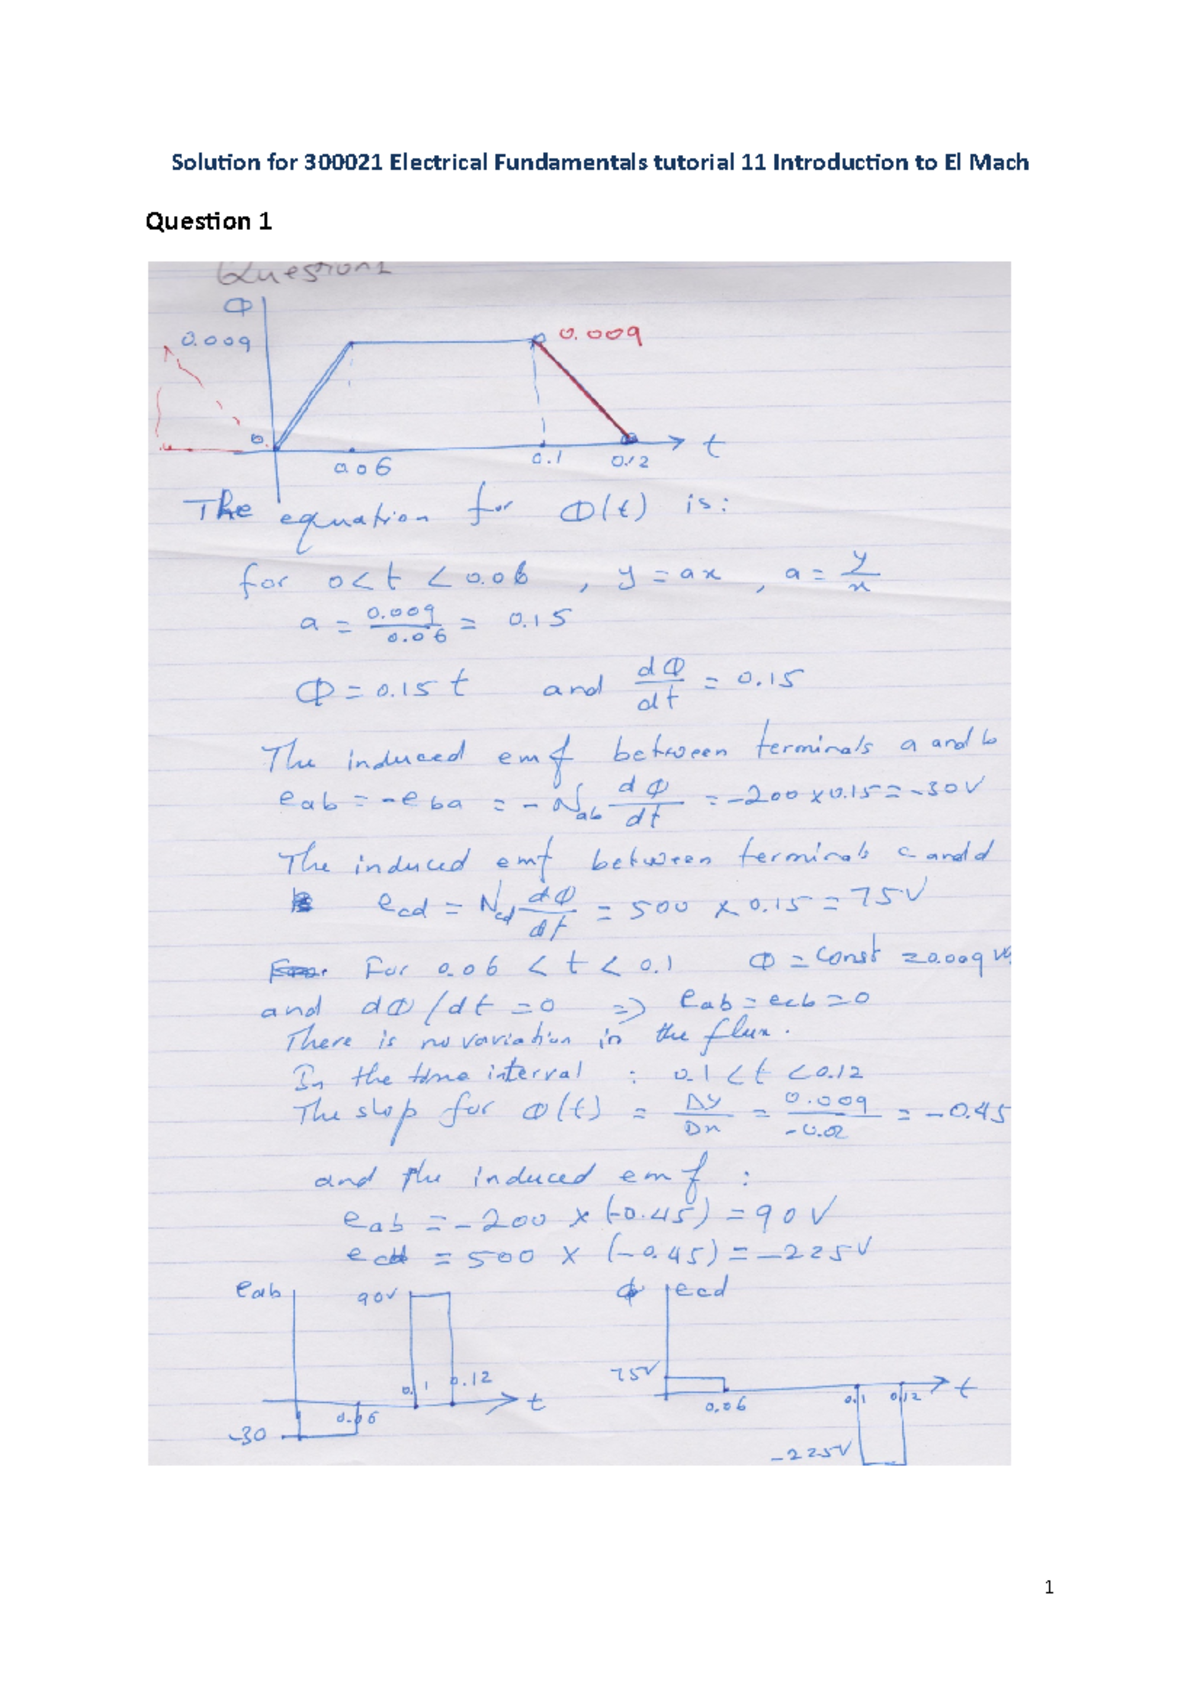 Solution for 300021 Electrical Fundamentals tutorial 11 Introduction to El Mach
Question 1
Question 1
Φ
0.009
0.009
0
0.06
0.1
0.12
t
The equation for Φ(t) is:
for 0<t<0.06 , y=ax , a = y/x
a = 0.009/0.06 = 0.15
Φ=0.15t and dΦ/dt = 0.15
The induced emf between terminals a and b
eab = -eba = - Nab dΦ/dt = -200 x 0.15 = -30V
The induced emf between terminals c and d
ecd = Ncd dΦ/dt = 500 x 0.15 = 75V
For 0.06 < t < 0.1 Φ = const = 0.009
and dΦ/dt = 0 => eab = ecb = 0
There is no variation in the flux.
In the time interval : 0.1 < t < 0.12
The slop for Φ(t) = Δy/Dx = 0.009/-0.02 = -0.45
and the induced emf :
eab = -200 x (-0.45) = 90V
ecd = 500 x (-0.45) = -225V
eab
90V
0.1
0.12
t
0.06
-30
Φ ecd
75V
0.06
0.1
0.12
t
-225V
1